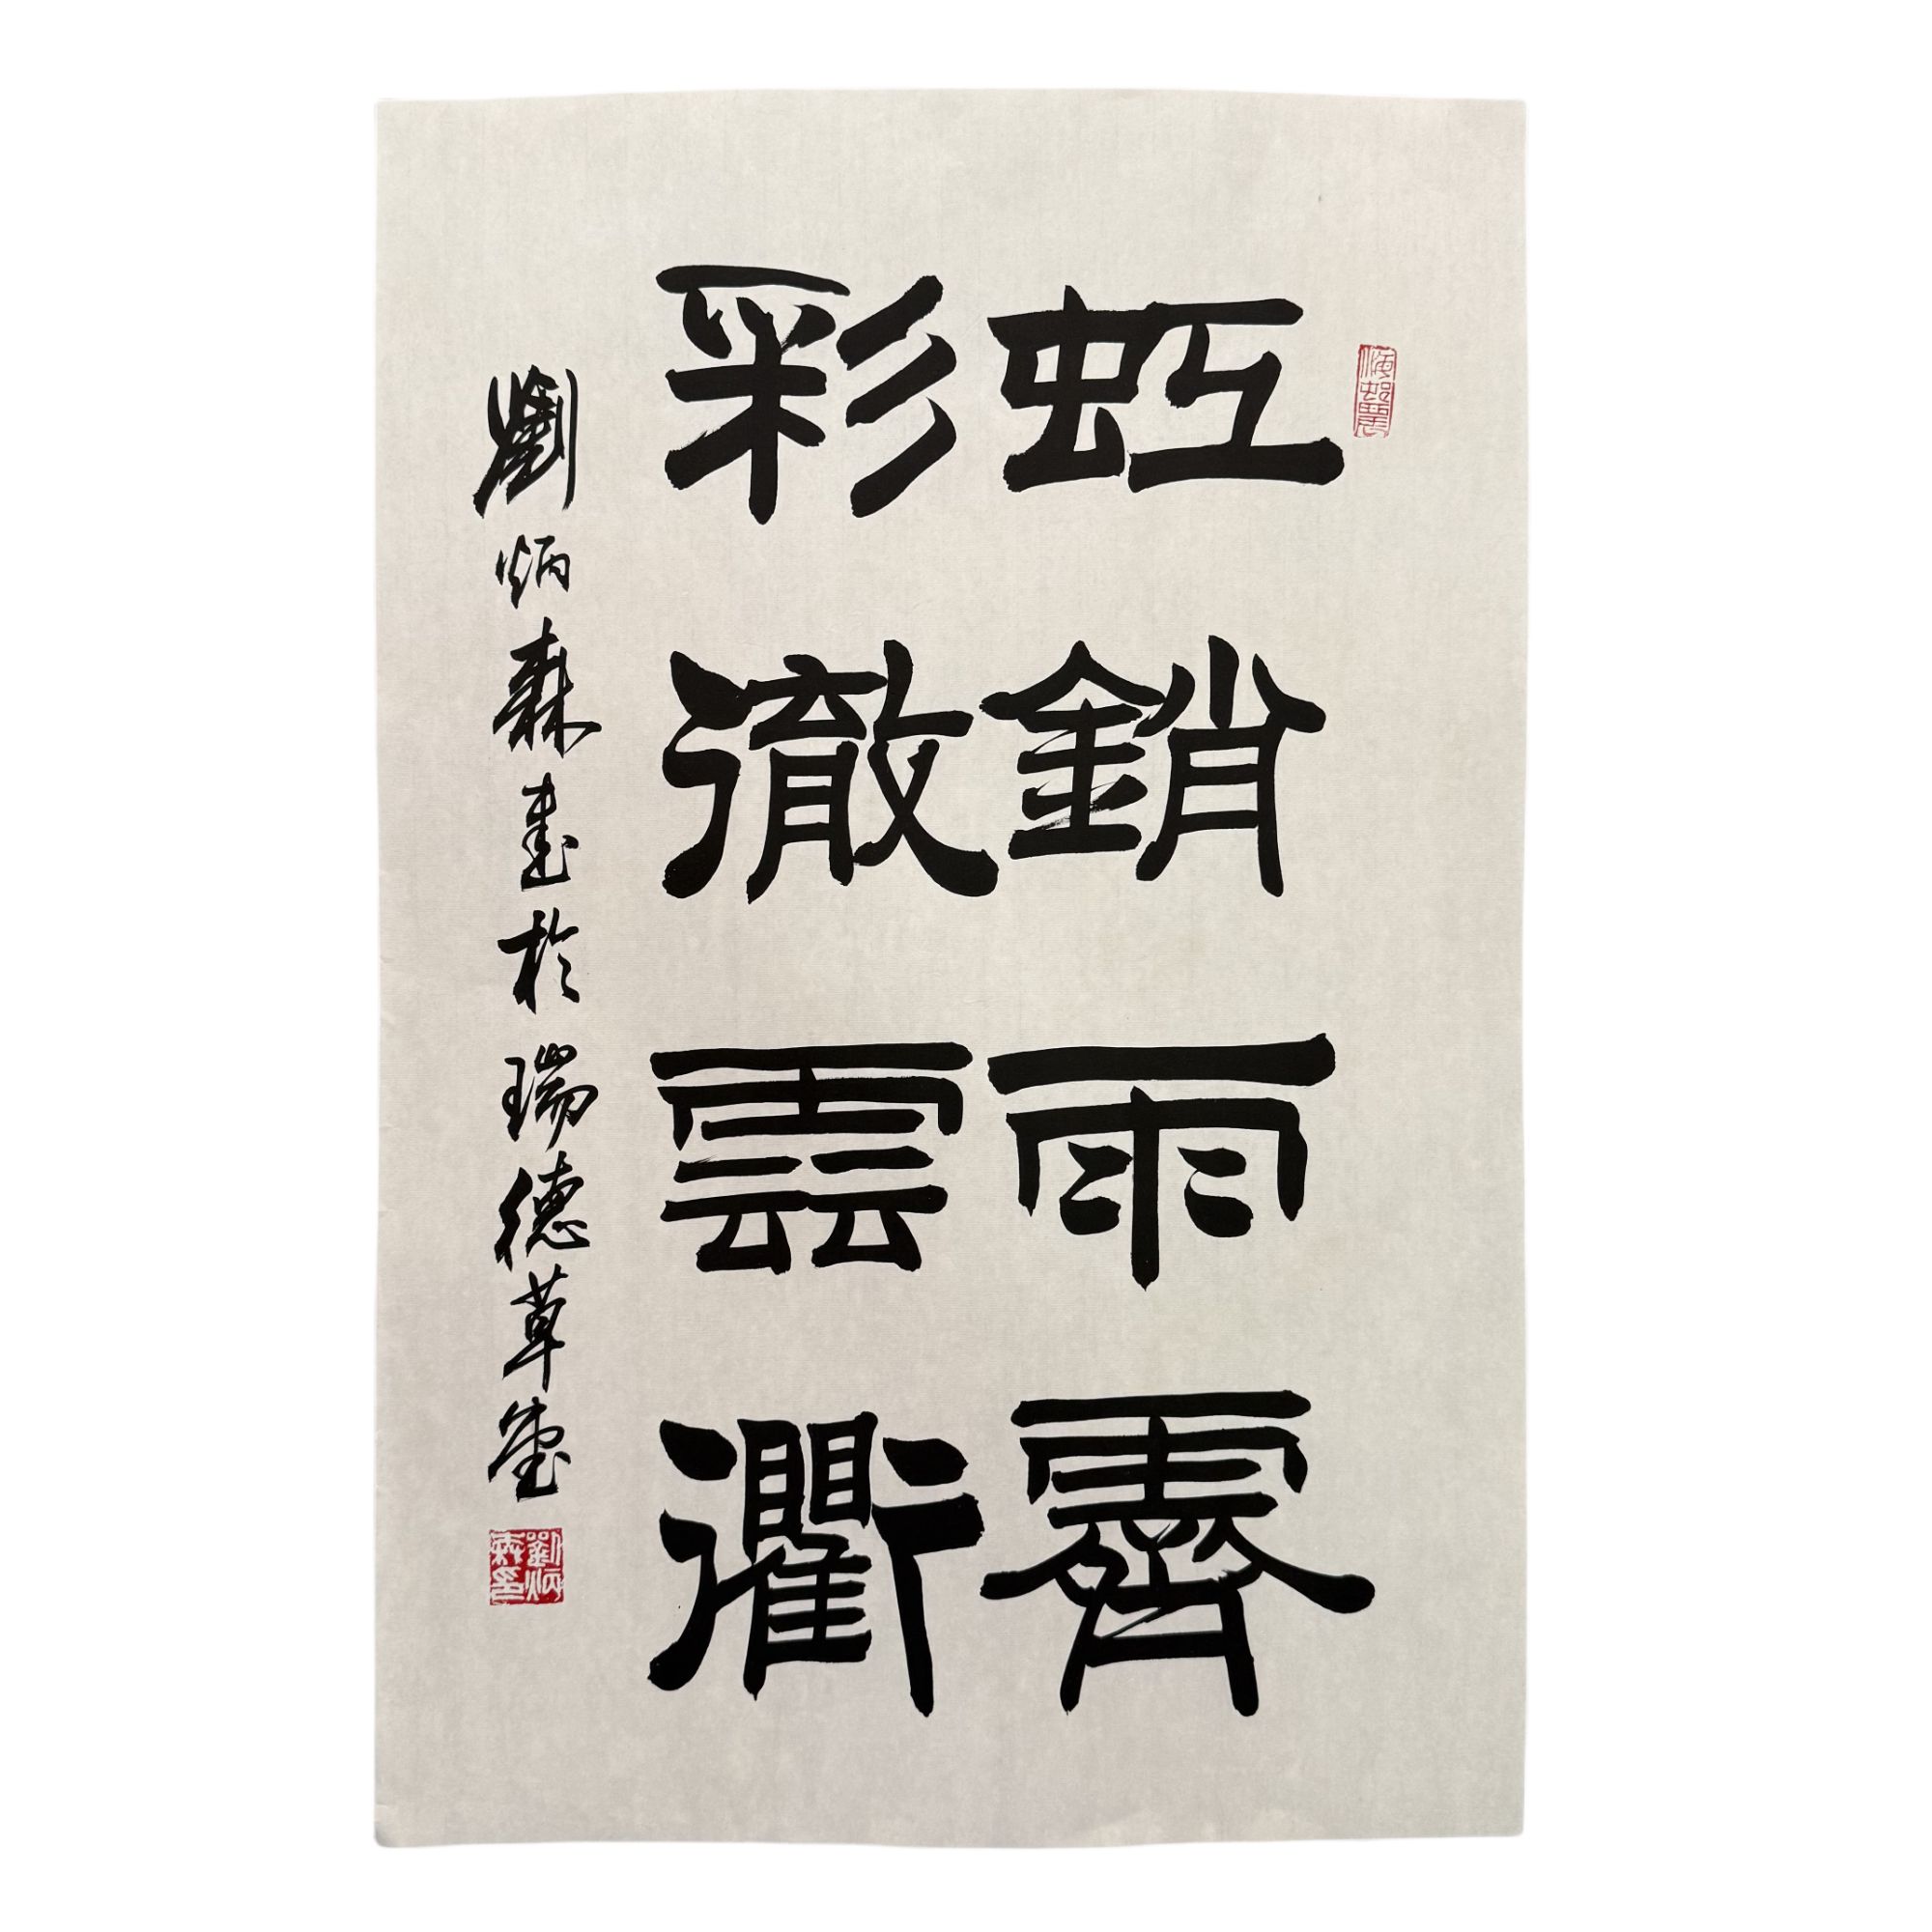 虹銷雨霽
彩澈雲衢
劉炳森書於瑞德草堂
劉炳森印